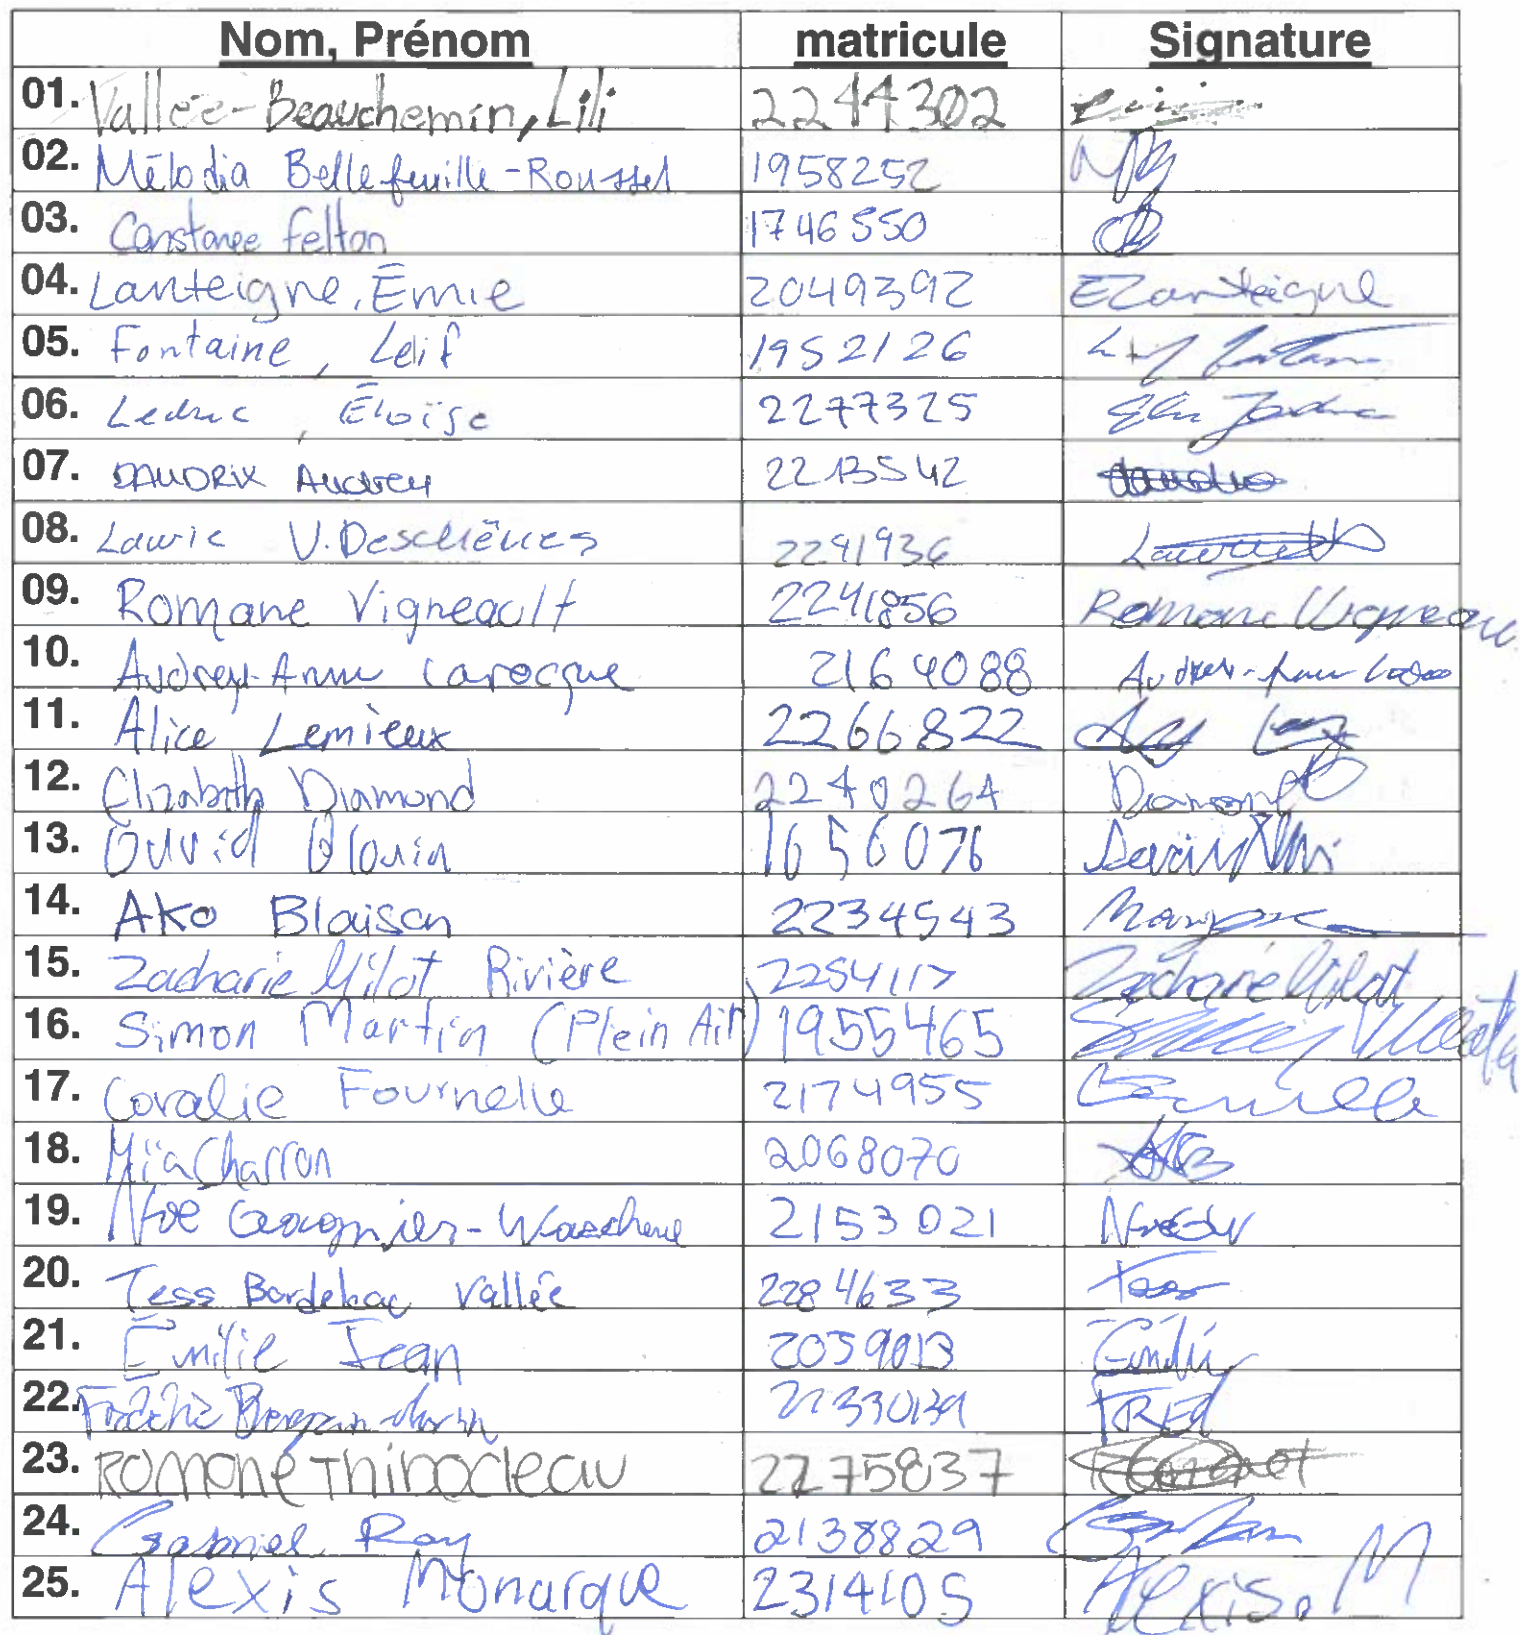 Nom, Prénom matricule Signature
01. Vallée-Beauchemin, Lili 2244302
02. Mélodia Bellefeuille-Roussel 1958252
03. Constance Felton 1746550
04. Lanteigne, Émie 2049392 ELanteigne
05. Fontaine, Leif 1952126
06. Leduc, Éloïse 2277325
07. Audrey 2213542
08. Laurie V.Deschênes 2241936
09. Romane Vigneault 2241856 Romane Vigneau
10. Audrey-Anne Larocque 2164088 Audrey-Anne
11. Alice Lemieux 2266822
12. Elizabeth Diamond 2240264 Diamond
13. David Blouin 1656076
14. Ako Blaison 2234543
15. Zacharie Milot Rivière 2254117 Zacharie Milot
16. Simon Martin (Plein Air) 1955465
17. Coralie Fournelle 2174955
18. Mïa Charron 2068070
19. Noé 2153021
20. Tess Vallée 2284633 Tess
21. Émilie Jean 2039013
22. FRED
23. Romane Thibodeau 2275837
24. Gabriel Roy 2138829
25. Alexis Monarque 2314105 Alexis. M